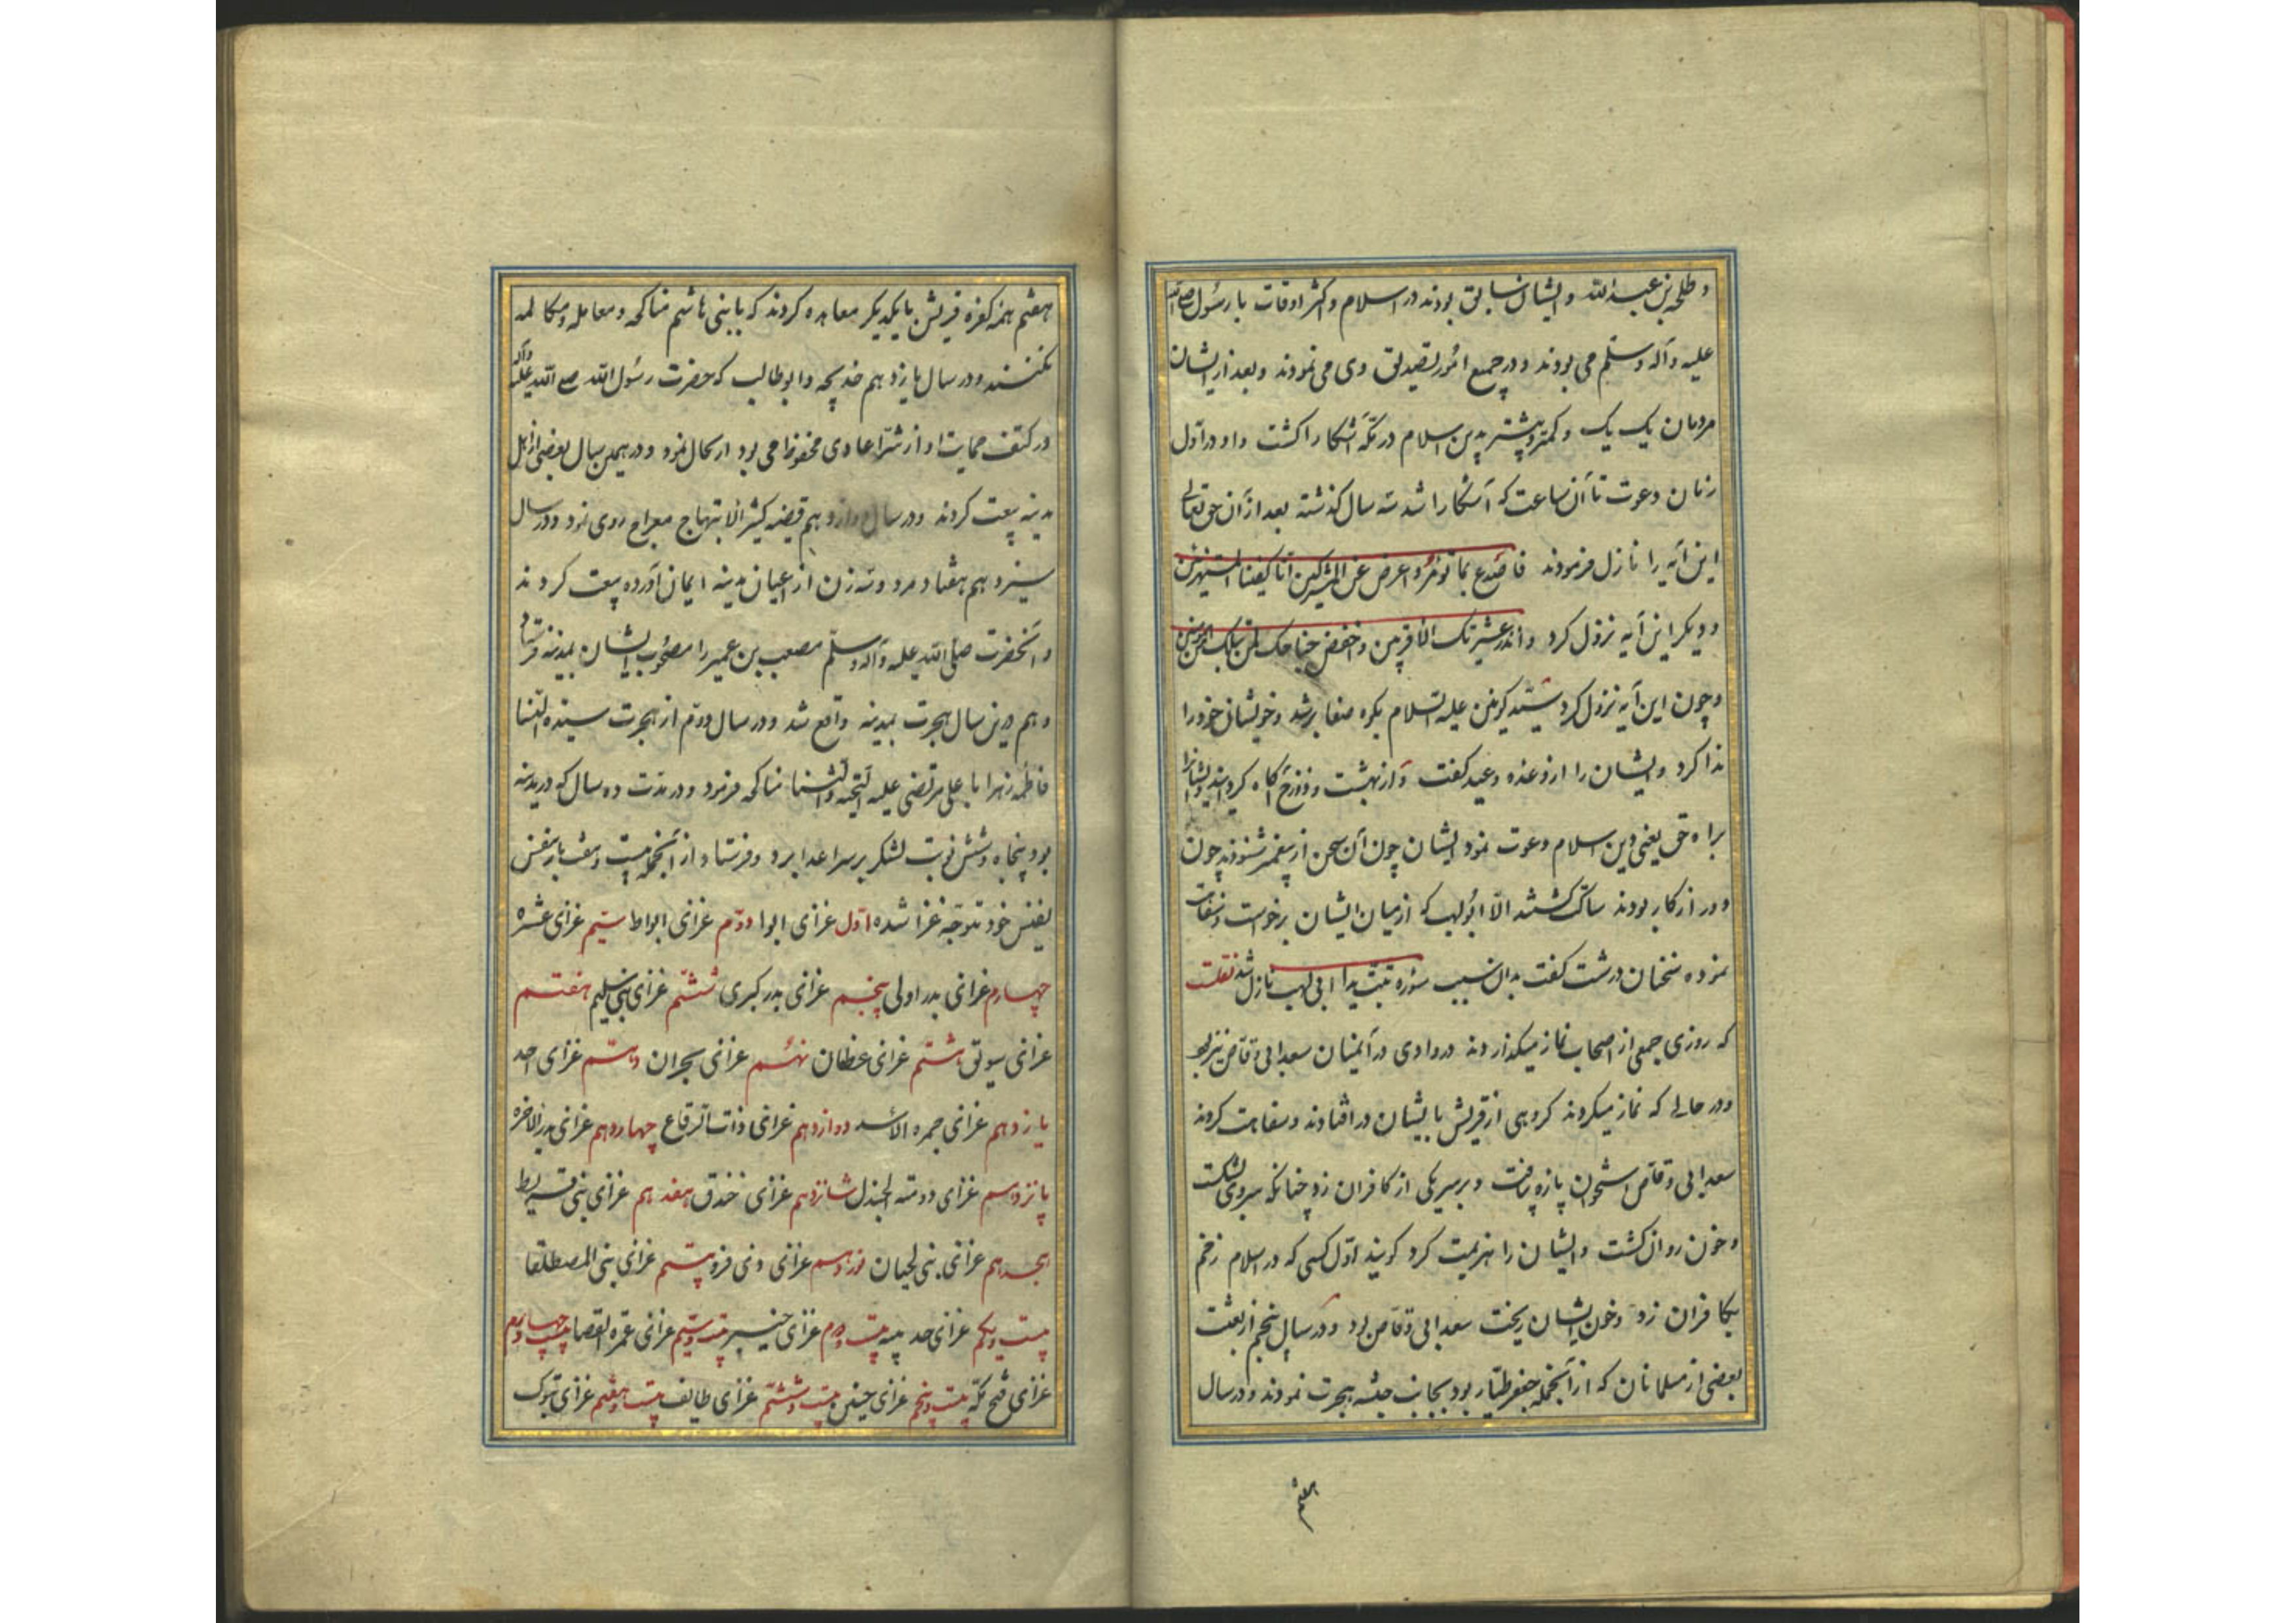 و طلحه بن عبد الله و ایشان سابق بودند در اسلام و اکثر اوقات با رسول صلی الله
علیه و آله و سلم می بودند و در جمیع امور تصدیق وی می نمودند و بعد از ایشان
مردمان یک یک و کمتر و بیشتر بدین اسلام در مکه آشکارا کشت و او در اول
زمان دعوت تا آن ساعت که آشکارا شد سه سال کذشته بعد از آن حق تعالی
این آیه را نازل فرمودند فاصدع بما تؤمر و اعرض عن المشرکین انا کفیناک المستهزئین
و دیکر این آیه نزول کرد و انذر عشیرتک الاقربین و اخفض جناحک لمن اتبعک من المؤمنین
و چون این آیه نزول کرد سید کونین علیه السلام بکوه صفا بر شد و خویشان خود را
ندا کرد و ایشان را از وعده و وعید کفت و از بهشت و دوزخ آکاه کردانید و ایشانرا
براه حق یعنی دین اسلام دعوت نمود ایشان چون آن سخن از پیغمبر شنودند چون
دور از کار بودند ساکت کشتند الا ابولهب که از میان ایشان برخواست و سفاهت
نموده سخنان درشت کفت بدان سبب سوره تبت یدا ابی لهب نازل شد نقلست
که روزی جمعی از اصحاب نماز میکذاردند در وادی در آنمیان سعد ابی وقاص نیز بود
و در حالی که نماز میکردند کروهی از قریش با یشان در افتادند و سفاهت کردند
سعد ابی وقاص استخوان پاره یافت و بر سر یکی از کافران زد چنانکه سر وی بشکست
و خون روان کشت و ایشان را هزیمت کرد کویند اول کسی که در اسلام زخم
بکافران زد و خون ایشان ریخت سعد ابی وقاص بود و در سال پنجم از بعثت
بعضی از مسلمانان که از آنجمله جعفر طیار بود بجانب حبشه هجرت نمودند و در سال
هفتم
هفتم همه کفره قریش با یکدیکر معاهده کردند که با بنی هاشم مناکحه و معامله و مکالمه
نکنند و در سال یازدهم خدیجه و ابوطالب که حضرت رسول الله صلی الله علیه و آله
در کنف حمایت او از شر اعادی محفوظ می بود ارتحال نمود و در همین سال بعضی از اهل
مدینه بیعت کردند و در سال دوازدهم قضیه کثیر الابتهاج معراج روی نمود و در سال
سیزدهم هفتاد مرد و سه زن از اعیان مدینه ایمان آورده بیعت کردند
و آنحضرت صلی الله علیه و آله و سلم مصعب بن عمیر را مصحوب ایشان بمدینه فرستاد
و هم درین سال هجرت بمدینه واقع شد و در سال دوم از هجرت سیدة النسا
فاطمه زهرا با علی مرتضی علیه التحیه و الثنا مناکحه فرمود و در مدت ده سال که در مدینه
بود پنجاه و شش نوبت لشکر بر سر اعدا برد و فرستاد از آنجمله بیست و هفت بار بنفس
بنفس خود متوجه غزا شده اول غزای ابوا دوم غزای ابواط سیم غزای عشیره
چهارم غزای بدر اولی پنجم غزای بدر کبری ششم غزای بنی سلیم هفتم
غزای سویق هشتم غزای غطفان نهم غزای بحران دهم غزای احد
یازدهم غزای حمره الاسد دوازدهم غزای ذات الرقاع چهاردهم غزای بدر الاخره
پانزدهم غزای دومة الجندل شانزدهم غزای خندق هفدهم غزای بنی قریظ
هجدهم غزای بنی لحیان نوزدهم غزای ذی قرد بیستم غزای بنی المصطلق
بیست و یکم غزای حدیبیه بیست و دوم غزای خیبر بیست و سیم غزای عمره القضا بیست و چهارم
غزای فتح مکه بیست و پنجم غزای حنین بیست و ششم غزای طایف بیست و هفتم غزای تبوک